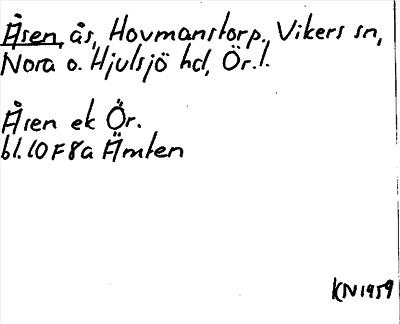 Åsen, ås, Hovmanstorp, Vikers sn,
Nora o. Hjulsjö hd, Ör. l.
Åsen ek Ör.
bl. 10 F 8a Ämten
KN 1959